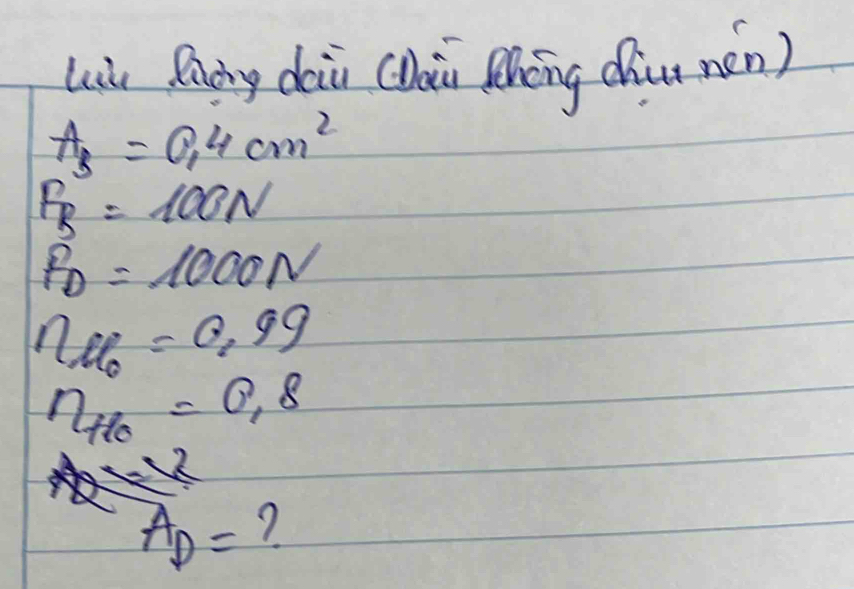 Lưu lượng dầu (Dầu không chịu nén)
A_B = 0,4 cm²
F_B = 100N
F_D = 1000N
η_Mo = 0,99
η_Ho = 0,8
A_D = ?